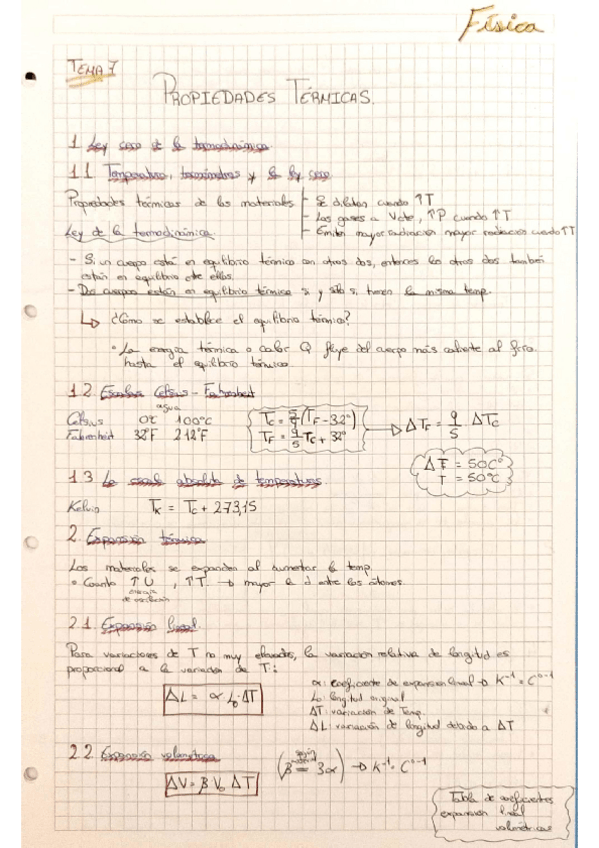 Física
TEMA 7
PROPIEDADES TÉRMICAS.
1 Ley cero de la termodinámica
1.1 Temperatura, termómetros y la ley cero
Propiedades térmicas de los materiales - Se dilatan cuando ↑T
- Los gases a V cte, ↑P cuando ↑T
- Emiten mayor radiación mayor radiación cuando ↑T
Ley de la termodinámica.
- Si un cuerpo está en equilibrio térmico con otros dos, entonces los otros dos también
están en equilibrio entre ellos.
- Dos cuerpos están en equilibrio térmico si y sólo si tienen la misma temp.
↳ ¿Cómo se establece el equilibrio térmico?
• La energía térmica o calor Q fluye del cuerpo más caliente al frío
hasta el equilibrio térmico.
1.2. Escalas Celsius - Fahrenheit
agua
Celsius 0℃ 100℃
Fahrenheit 32°F 212°F
T_C = 5/9 (T_F - 32°)
T_F = 9/5 T_C + 32°
→ ΔT_F = 9/5 · ΔT_C
ΔT = 50C°
T = 50°C
1.3 La escala absoluta de temperaturas
Kelvin T_K = T_C + 273,15
2. Expansión térmica
Los materiales se expanden al aumentar la temp.
• Cuanto ↑U , ↑T → mayor la d entre los átomos.
energía
de oscilación
2.1. Expansión lineal
Para variaciones de T no muy elevadas, la variación relativa de longitud es
proporcional a la variación de T:
ΔL = α L₀ · ΔT
α: coeficiente de expansión lineal → K⁻¹ = C°⁻¹
L₀: longitud original
ΔT: variación de Temp.
ΔL: variación de longitud debido a ΔT
2.2 Expansión volumétrica
ΔV = β V₀ ΔT
(β = 3α) → K⁻¹ = C°⁻¹
según
material
Tabla de coeficientes
expansión lineal
volumétricas